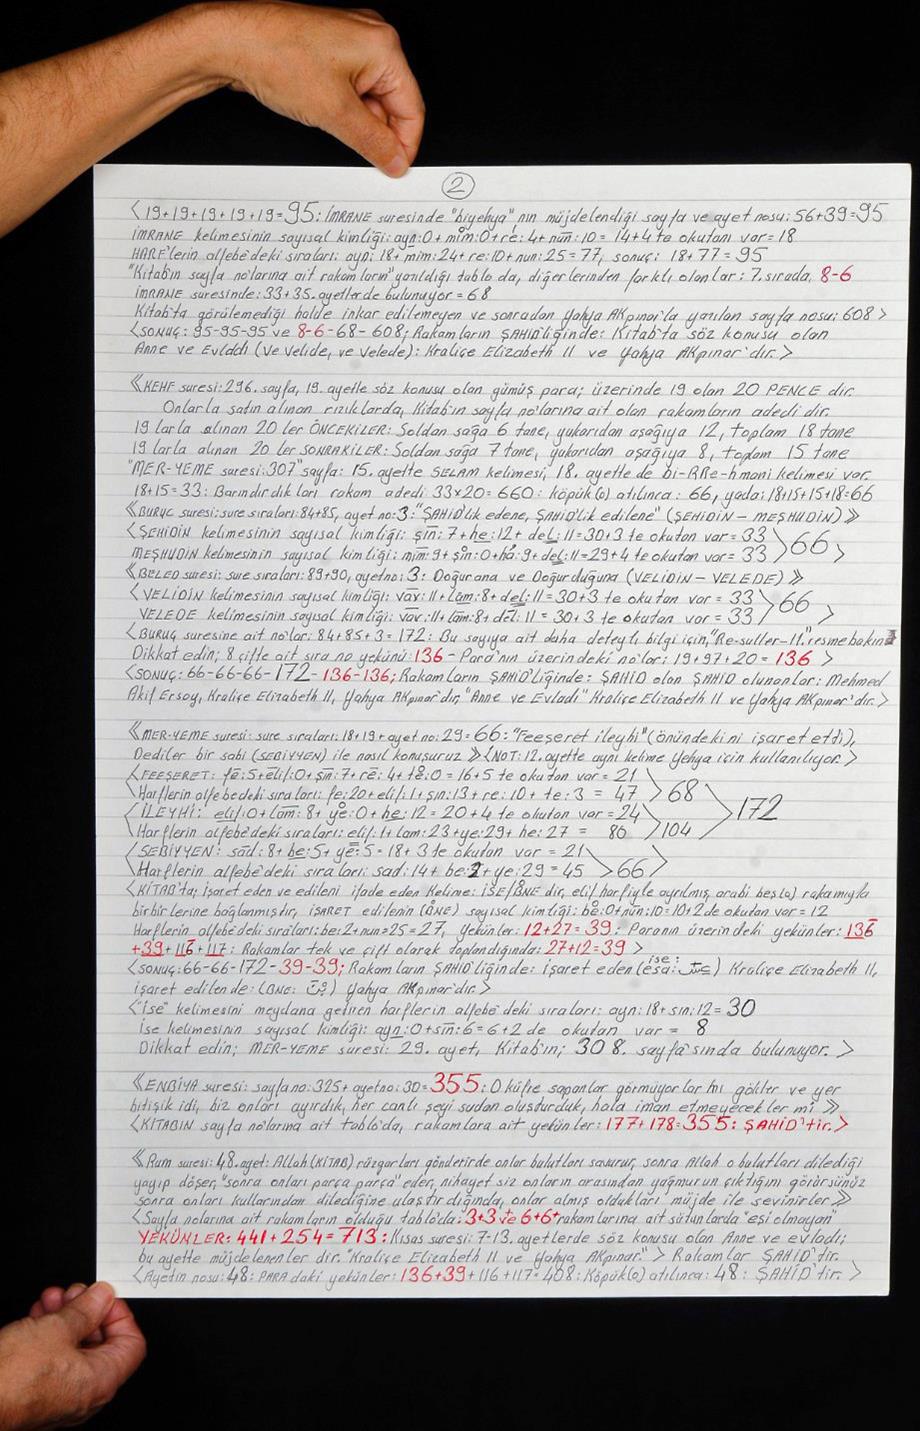 2
< 19+19+19+19+19=95: İMRANE suresinde "biyehya" nın müjdelendiği sayfa ve ayet nosu: 56+39=95
İMRANE kelimesinin sayısal kimliği: ayn:0+mim:0+re:4+nun:10=14+4 te okutanı var=18
HARF'lerin alfebe'deki sıraları: ayn:18+mim:24+re:10+nun:25=77, sonuç: 18+77=95
"Kitab'ın sayfa no'larına ait rakamların" yazıldığı tablo da, diğerlerinden farklı olanlar: 7. sırada, 8-6
İMRANE suresinde: 33+35. ayetlerde bulunuyor=68
Kitab'ta görülemediği halde inkar edilemeyen ve sonradan Yahya AKpınar'la yazılan sayfa nosu: 608>
<SONUÇ: 95-95-95 ve 8-6-68-608; Rakamların ŞAHİD'liğinde: Kitab'ta söz konusu olan
Anne ve Evladı (Ve Velide, ve Velede): Kraliçe Elizabeth II ve Yahya AKpınar'dır.>
《KEHF suresi: 296. sayfa, 19. ayette söz konusu olan gümüş para; üzerinde 19 olan 20 PENCE dir.
Onlarla satın alınan rızıklarda, Kitab'ın sayfa no'larına ait olan rakamların adedi dir.
19 larla alınan 20 ler ÖNCEKİLER: Soldan sağa 6 tane, yukarıdan aşağıya 12, toplam 18 tane
19 larla alınan 20 ler SONRAKİLER: Soldan sağa 7 tane, yukarıdan aşağıya 8, toplam 15 tane
"MER-YEME suresi: 307" sayfa: 15. ayette SELAM kelimesi, 18. ayette de bi-RRe-hmani kelimesi var.
18+15=33: Barındırdıkları rakam adedi 33x20=660: köpük(o) atılınca: 66, yada: 18+15+15+18=66
《BURUC suresi: sure sıraları: 84+85, ayet no: 3: "ŞAHİD'lik edene, ŞAHİD'lik edilene" (ŞEHİDİN - MEŞHUDİN)》
<ŞEHİDİN kelimesinin sayısal kimliği: şin:7+he:12+del:11=30+3 te okutan var=33 > 66
MEŞHUDİN kelimesinin sayısal kimliği: mim:9+şin:0+ha:9+del:11=29+4 te okutan var=33 >
《BELED suresi: sure sıraları: 89+90, ayet no: 3: Doğurana ve Doğurduğuna (VELİDİN - VELEDE)》
<VELİDİN kelimesinin sayısal kimliği: vav:11+lam:8+del:11=30+3 te okutan var=33 > 66
VELEDE kelimesinin sayısal kimliği: vav:11+lam:8+del:11=30+3 te okutan var=33 >
<BURUÇ suresine ait no'lar: 84+85+3=172: Bu sayıya ait daha detaylı bilgi için, "Re-suller-11." resme bakın
Dikkat edin; 8 çifte ait sıra no yekünü: 136 - Para'nın üzerindeki no'lar: 19+97+20=136 >
<SONUÇ: 66-66-66-172-136-136; Rakamların ŞAHİD'liğinde: ŞAHİD olan ŞAHİD olunanlar: Mehmed
Akif Ersoy, Kraliçe Elizabeth II, Yahya AKpınar'dır, "Anne ve Evladı" Kraliçe Elizabeth II ve Yahya AKpınar'dır.>
《MER-YEME suresi: sure sıraları: 18+19+ayet no: 29=66: "Feeşeret ileyhi" (önündekini işaret etti),
Dediler bir sabi (SEBİYYEN) ile nasıl konuşuruz》<NOT: 12. ayette aynı kelime Yehya için kullanılıyor.>
<FEEŞERET: fe:5+elif:0+şin:7+re:4+te:0=16+5 te okutan var=21 > 68
<Harflerin alfebe'deki sıraları: fe:20+elif:1+şın:13+re:10+te:3=47 > 172
<İLEYHİ: elif:0+lam:8+ye:0+he:12=20+4 te okutan var=24
Harflerin alfebe'deki sıraları: elif:1+lam:23+ye:29+he:27=80 > 104
<SEBİYYEN: sad:8+be:5+ye:5=18+3 te okutan var=21 > 66 >
<Harflerin alfebe'deki sıraları: sad:14+be:2+ye:29=45
<KİTAB'ta; işaret eden ve edileni ifade eden Kelime: İSE/BNE dir, elif harfiyle ayrılmış, arabi beş(o) rakamıyla
birbirlerine bağlanmıştır, İŞARET edilenin (BNE) sayısal kimliği: be:0+nun:10=10+2 de okutan var=12
Harflerin alfebe'deki sıraları: be:2+nun=25=27, Yekünler: 12+27=39: Paranın üzerindeki yekünler: 136
+39+116+117: Rakamlar tek ve çift olarak toplandığında: 27+12=39 >
<SONUÇ: 66-66-172-39-39; Rakamların ŞAHİD'liğinde: işaret eden (ise: esa: عيسى) Kraliçe Elizabeth II,
işaret edilende: (BNE: بن) Yahya AKpınar'dır.>
<"İse" kelimesini meydana getiren harflerin alfebe'deki sıraları: ayn:18+sın:12=30
İse kelimesinin sayısal kimliği: ayn:0+sin:6=6+2 de okutan var=8
Dikkat edin; MER-YEME suresi: 29. ayet, Kitab'ın; 308. sayfa'sında bulunuyor. >
《ENBİYA suresi: sayfa no: 325+ayet no: 30=355: O küfre sapanlar görmüyorlar mı gökler ve yer
bitişik idi, biz onları ayırdık, her canlı şeyi sudan oluşturduk, hala iman etmeyecekler mi》
<KİTABIN sayfa no'larına ait tablo'da, rakamlara ait yekünler: 177+178=355: ŞAHİD'tir.>
《Rum suresi: 48. ayet: Allah (KİTAB) rüzgarları gönderirde onlar bulutları savurur, sonra Allah o bulutları dilediği
yayıp döşer, "sonra onları parça parça" eder, nihayet siz onların arasından yağmurun çıktığını görürsünüz
sonra onları kullarından dilediğine ulaştırdığında, onlar almış oldukları müjde ile sevinirler》
<Sayfa nolarına ait rakamların olduğu tablo'da: 3+3 ve 6+6 rakamlarına ait sütunlarda "eşi olmayan"
YEKÜNLER: 441+254=713: Kısas suresi: 7-13. ayetlerde söz konusu olan Anne ve evladı;
bu ayette müjdelenenler dir. "Kraliçe Elizabeth II ve Yahya AKpınar."> Rakamlar ŞAHİD'tir.
<Ayetin nosu: 48: PARA daki yekünler: 136+39+116+117=408: Köpük(o) atılınca: 48: ŞAHİD'tir. >